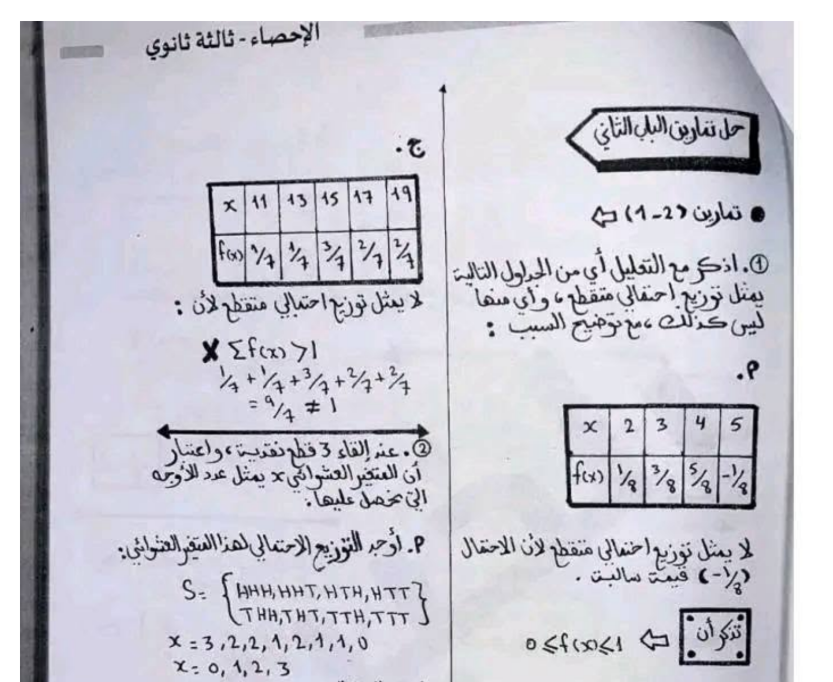 الإحصاء - ثالثة ثانوي
حل تمارين الباب الثاني
● تمارين (2-1) ⇦
①. اذكر مع التعليل أي من الجداول التالية
يمثل توزيع احتمالي متقطع، وأي منها
ليس كذلك، مع توضيح السبب :
م.
x 2 3 4 5
f(x) 1/8 3/8 5/8 -1/8
لا يمثل توزيع احتمالي متقطع لأن الاحتمال
(-1/8) قيمة سالبة .
تذكر أن ⇦ 0≤f(x)≤1
ج.
x 11 13 15 17 19
f(x) 1/7 1/7 3/7 2/7 2/7
لا يمثل توزيع احتمالي متقطع لأن :
✗ Σf(x) >1
1/7 + 1/7 + 3/7 + 2/7 + 2/7
= 9/7 ≠ 1
②. عند إلقاء 3 قطع نقدية، واعتبار
أن المتغير العشوائي x يمثل عدد الأوجه
التي نحصل عليها.
م. أوجد التوزيع الاحتمالي لهذا المتغير العشوائي:
S= {HHH,HHT,HTH,HTT
THH,THT,TTH,TTT}
x = 3,2,2,1,2,1,1,0
x= 0,1,2,3